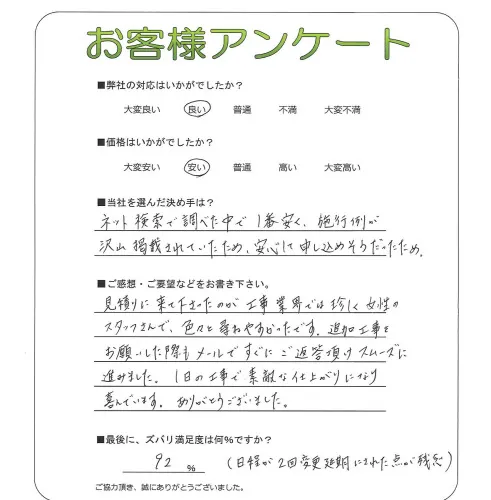 お客様アンケート
■弊社の対応はいかがでしたか？
大変良い 良い 普通 不満 大変不満
■価格はいかがでしたか？
大変安い 安い 普通 高い 大変高い
■当社を選んだ決め手は？
ネット検索で調べた中で1番安く、施行例が
沢山掲載されていたため、安心して申し込めそうだったため。
■ご感想・ご要望などをお書き下さい。
見積りに来て下さったのが工事業界では珍しく女性の
スタッフさんで、色々と尋ねやすかったです。追加工事を
お願いした際もメールですぐにご返答頂けスムーズに
進みました。1日の工事で素敵な仕上がりになり
喜んでいます。ありがとうございました。
■最後に、ズバリ満足度は何％ですか？
92 % (日程が2回変更延期にされた点が残念)
ご協力頂き、誠にありがとうございました。